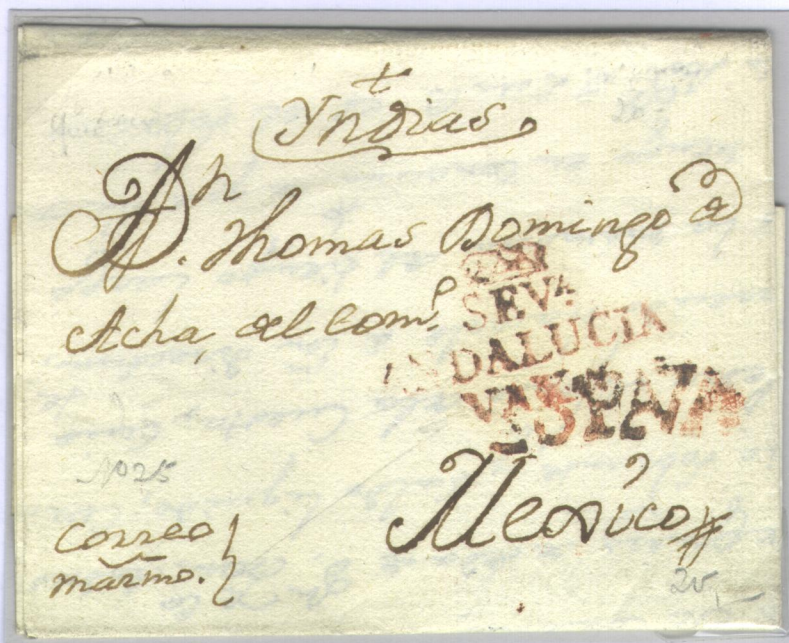 †
Yndias
Dn. Thomas Domingo de
Acha, del Como.
SEVa
ANDALUCIA
ESPAÑA
No 25
Mexico
correo
marmo.
25,